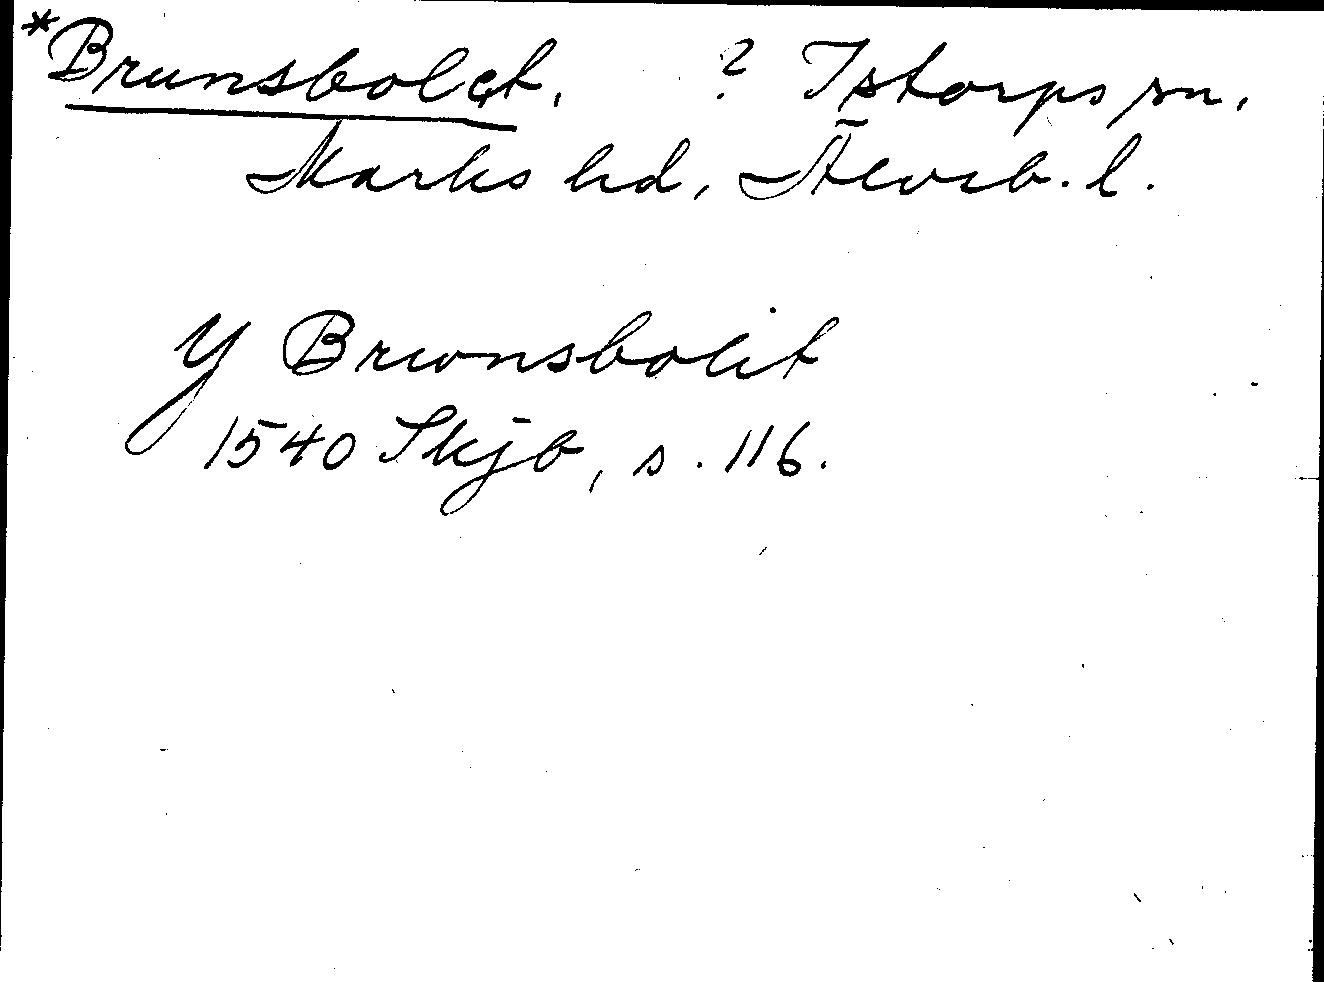 *Brunsbolet.    ? Istorps sn.
Marks hd, Älvsb. l.
Y Brwnsbolit
1540 Skjb, s. 116.